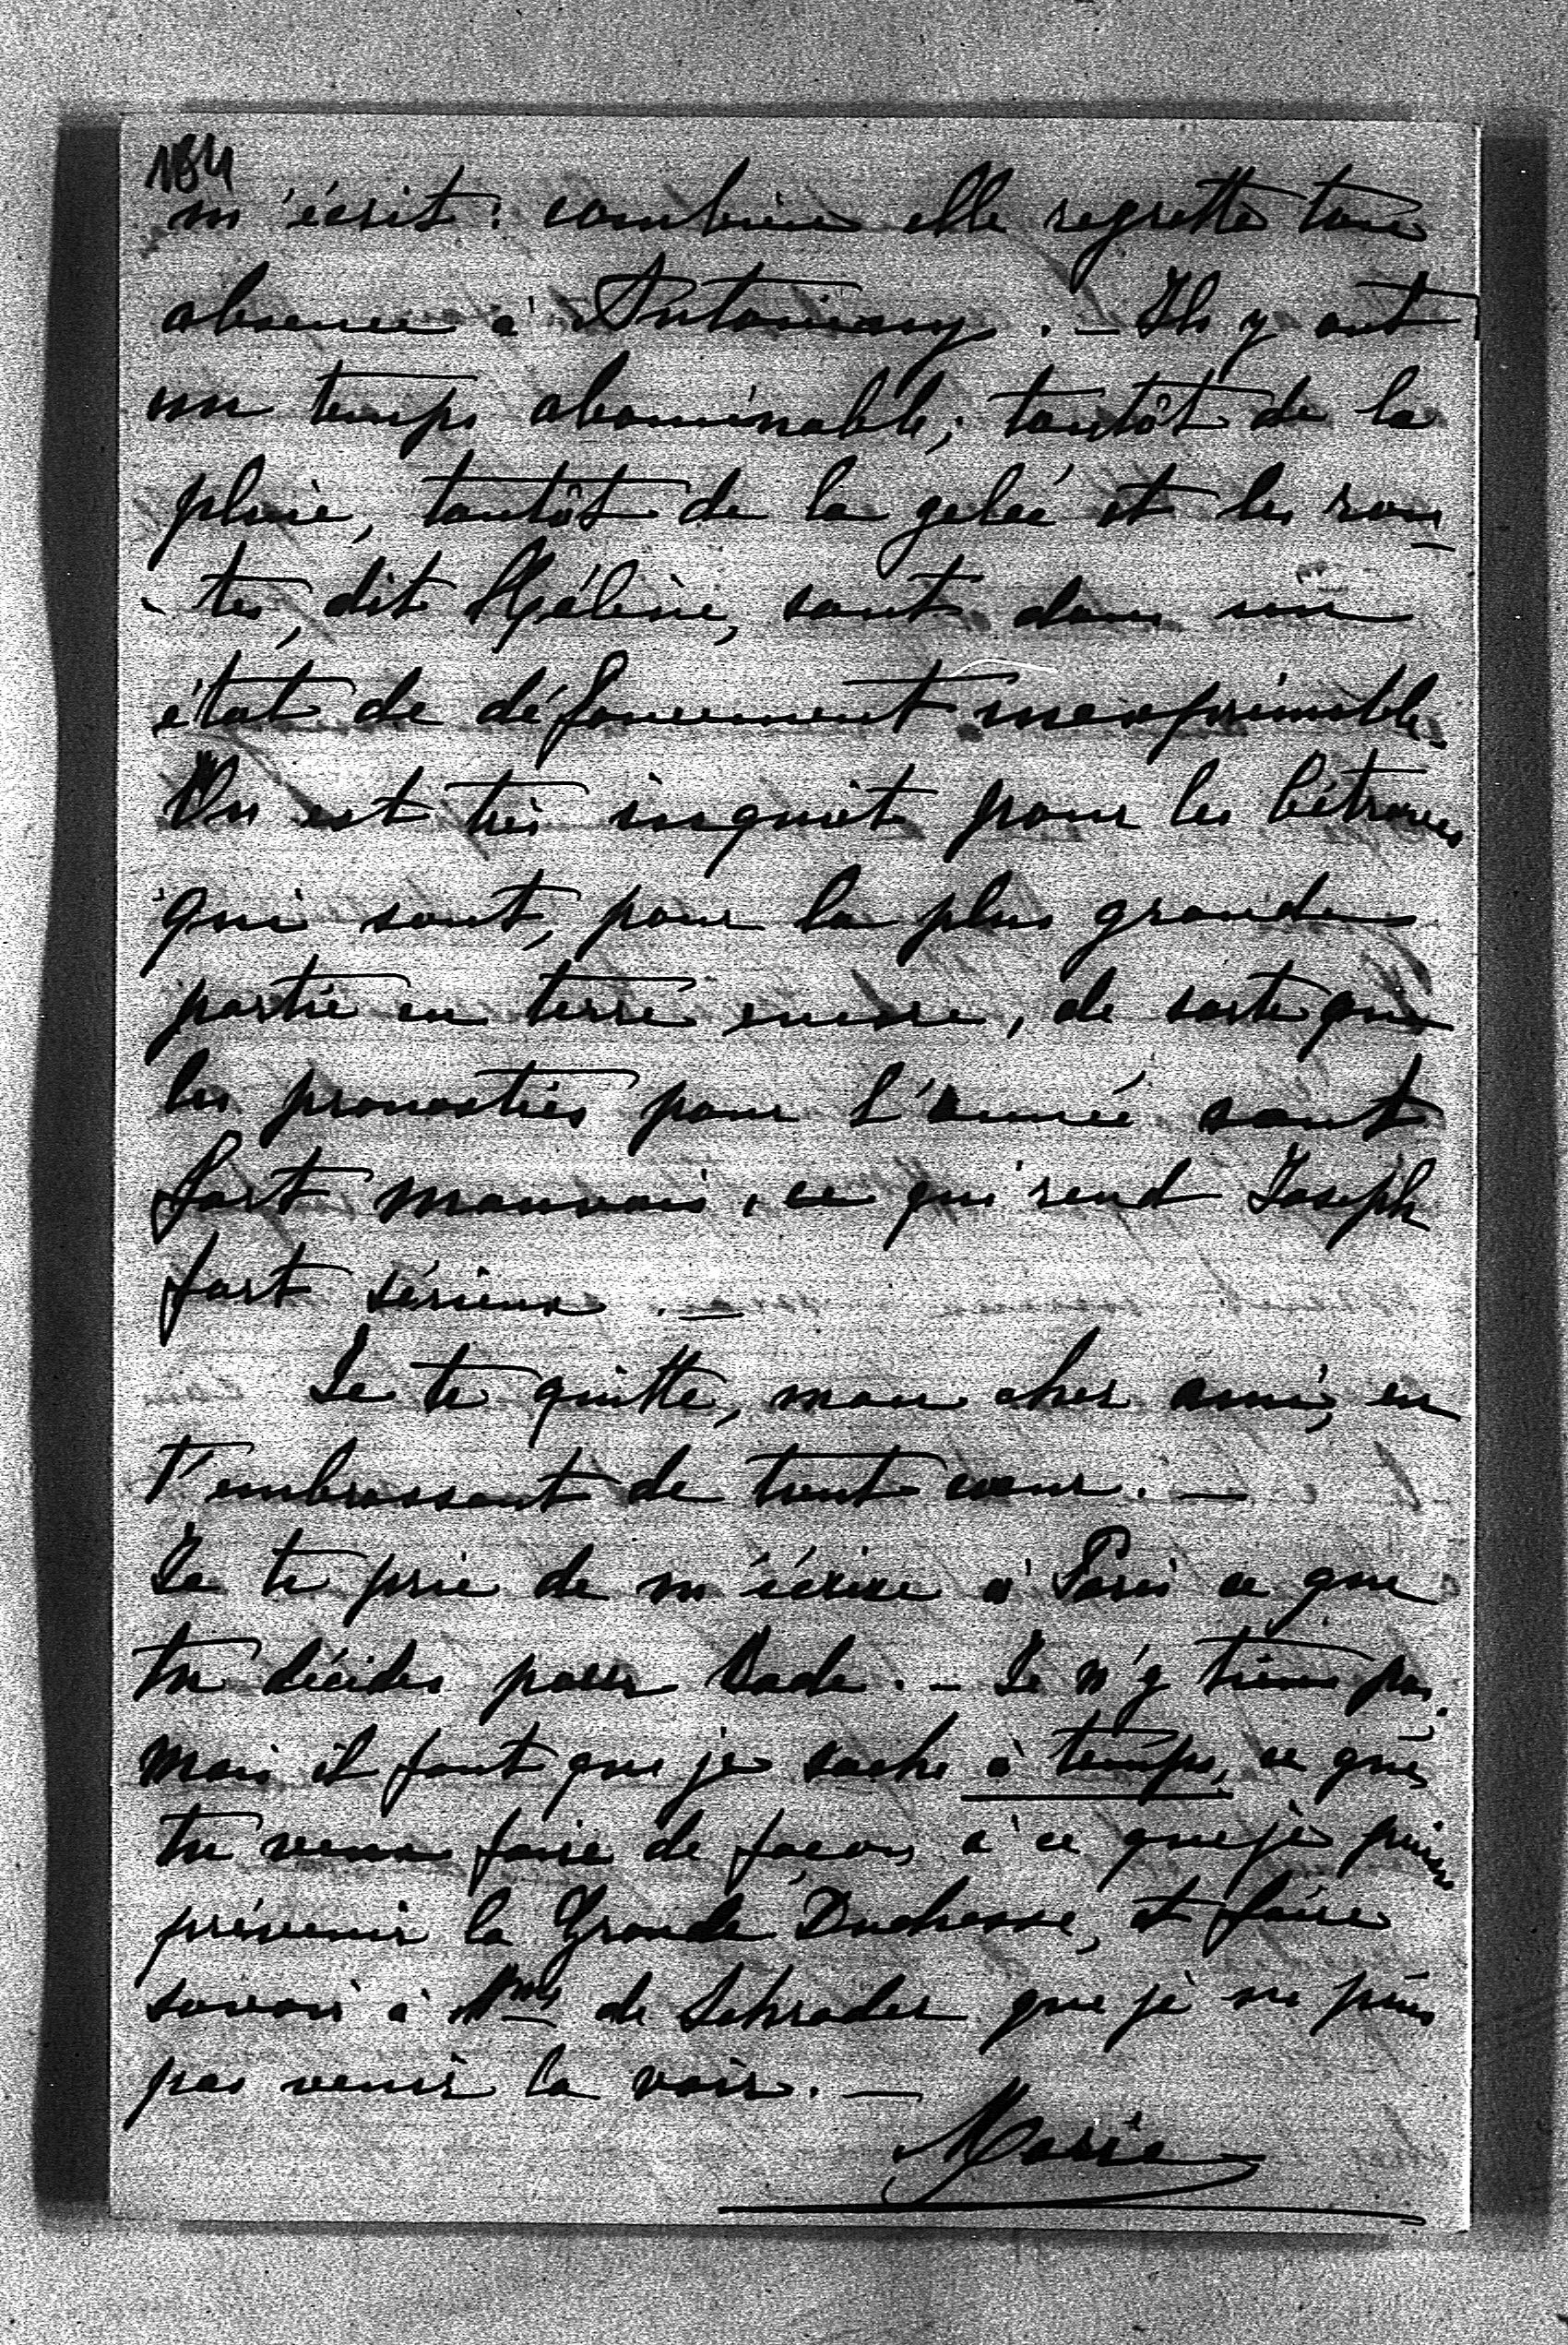 184
m'écrit: combien elle regrette ton
absence à Antoniny. — Ils y ont
un temps abominable; tantôt de la
pluie, tantôt de la gelée et les rou-
-tes, dit Hélène, sont dans un
état de défoncement inexprimable.
On est très inquiet pour les bétraves
qui sont, pour la plus grande
partie en terre encore, de sorte que
les pronostics pour l'année sont
fort mauvais, ce qui rend Joseph
fort sérieux. —
Je te quitte, mon cher ami, en
t'embrassant de tout cœur. —
Je te prie de m'écrire à Paris ce que
tu décides pour Bade. — Je n'y tiens pas,
mais il faut que je sache à temps, ce que
tu veux faire de façon à ce que je puisse
prévenir la Grande Duchesse, et faire
savoir à Mme de Schrader que je ne puis
pas venir la voir. —
Marie